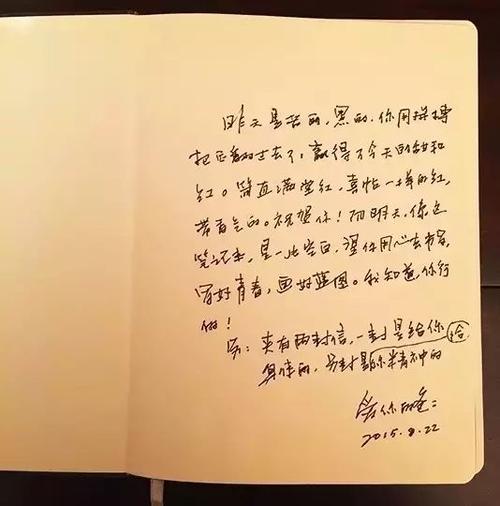 昨天是苦的,黑的,你用拼搏
把它们过去了,赢得了今天的甜和
红。简直满堂红,真怕一样的红,
带香气的。祝贺你!而明天,像这
笔记本,是一片空白,望你用心去书写,
写好青春,画好蓝图。我知道,你行
的!
另:夹有两封信,一封是给你
身体的,另封是给你精神的
爱你的爸爸
2015.8.22